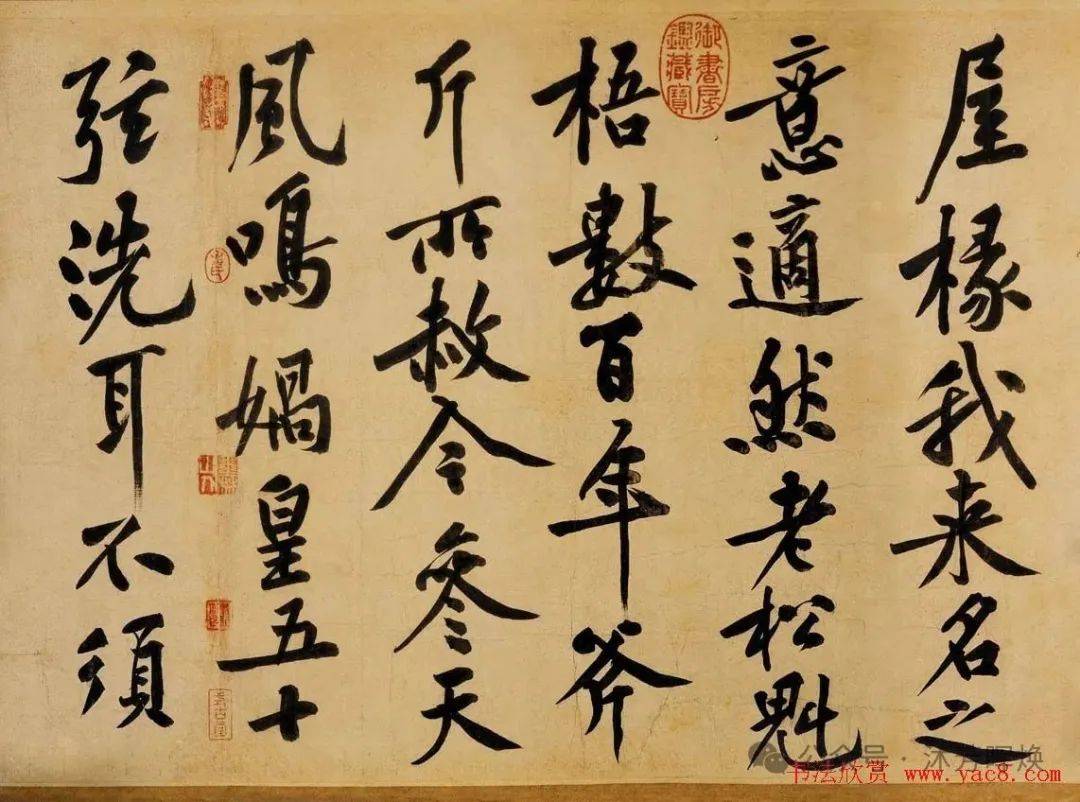 屋椽我来名之
意適然老松魁
梧數百年斧
斤所赦今參天
風鳴媧皇五十
弦洗耳不須
御書房鑑藏寶
公众号
书法欣赏 www.yac8.com